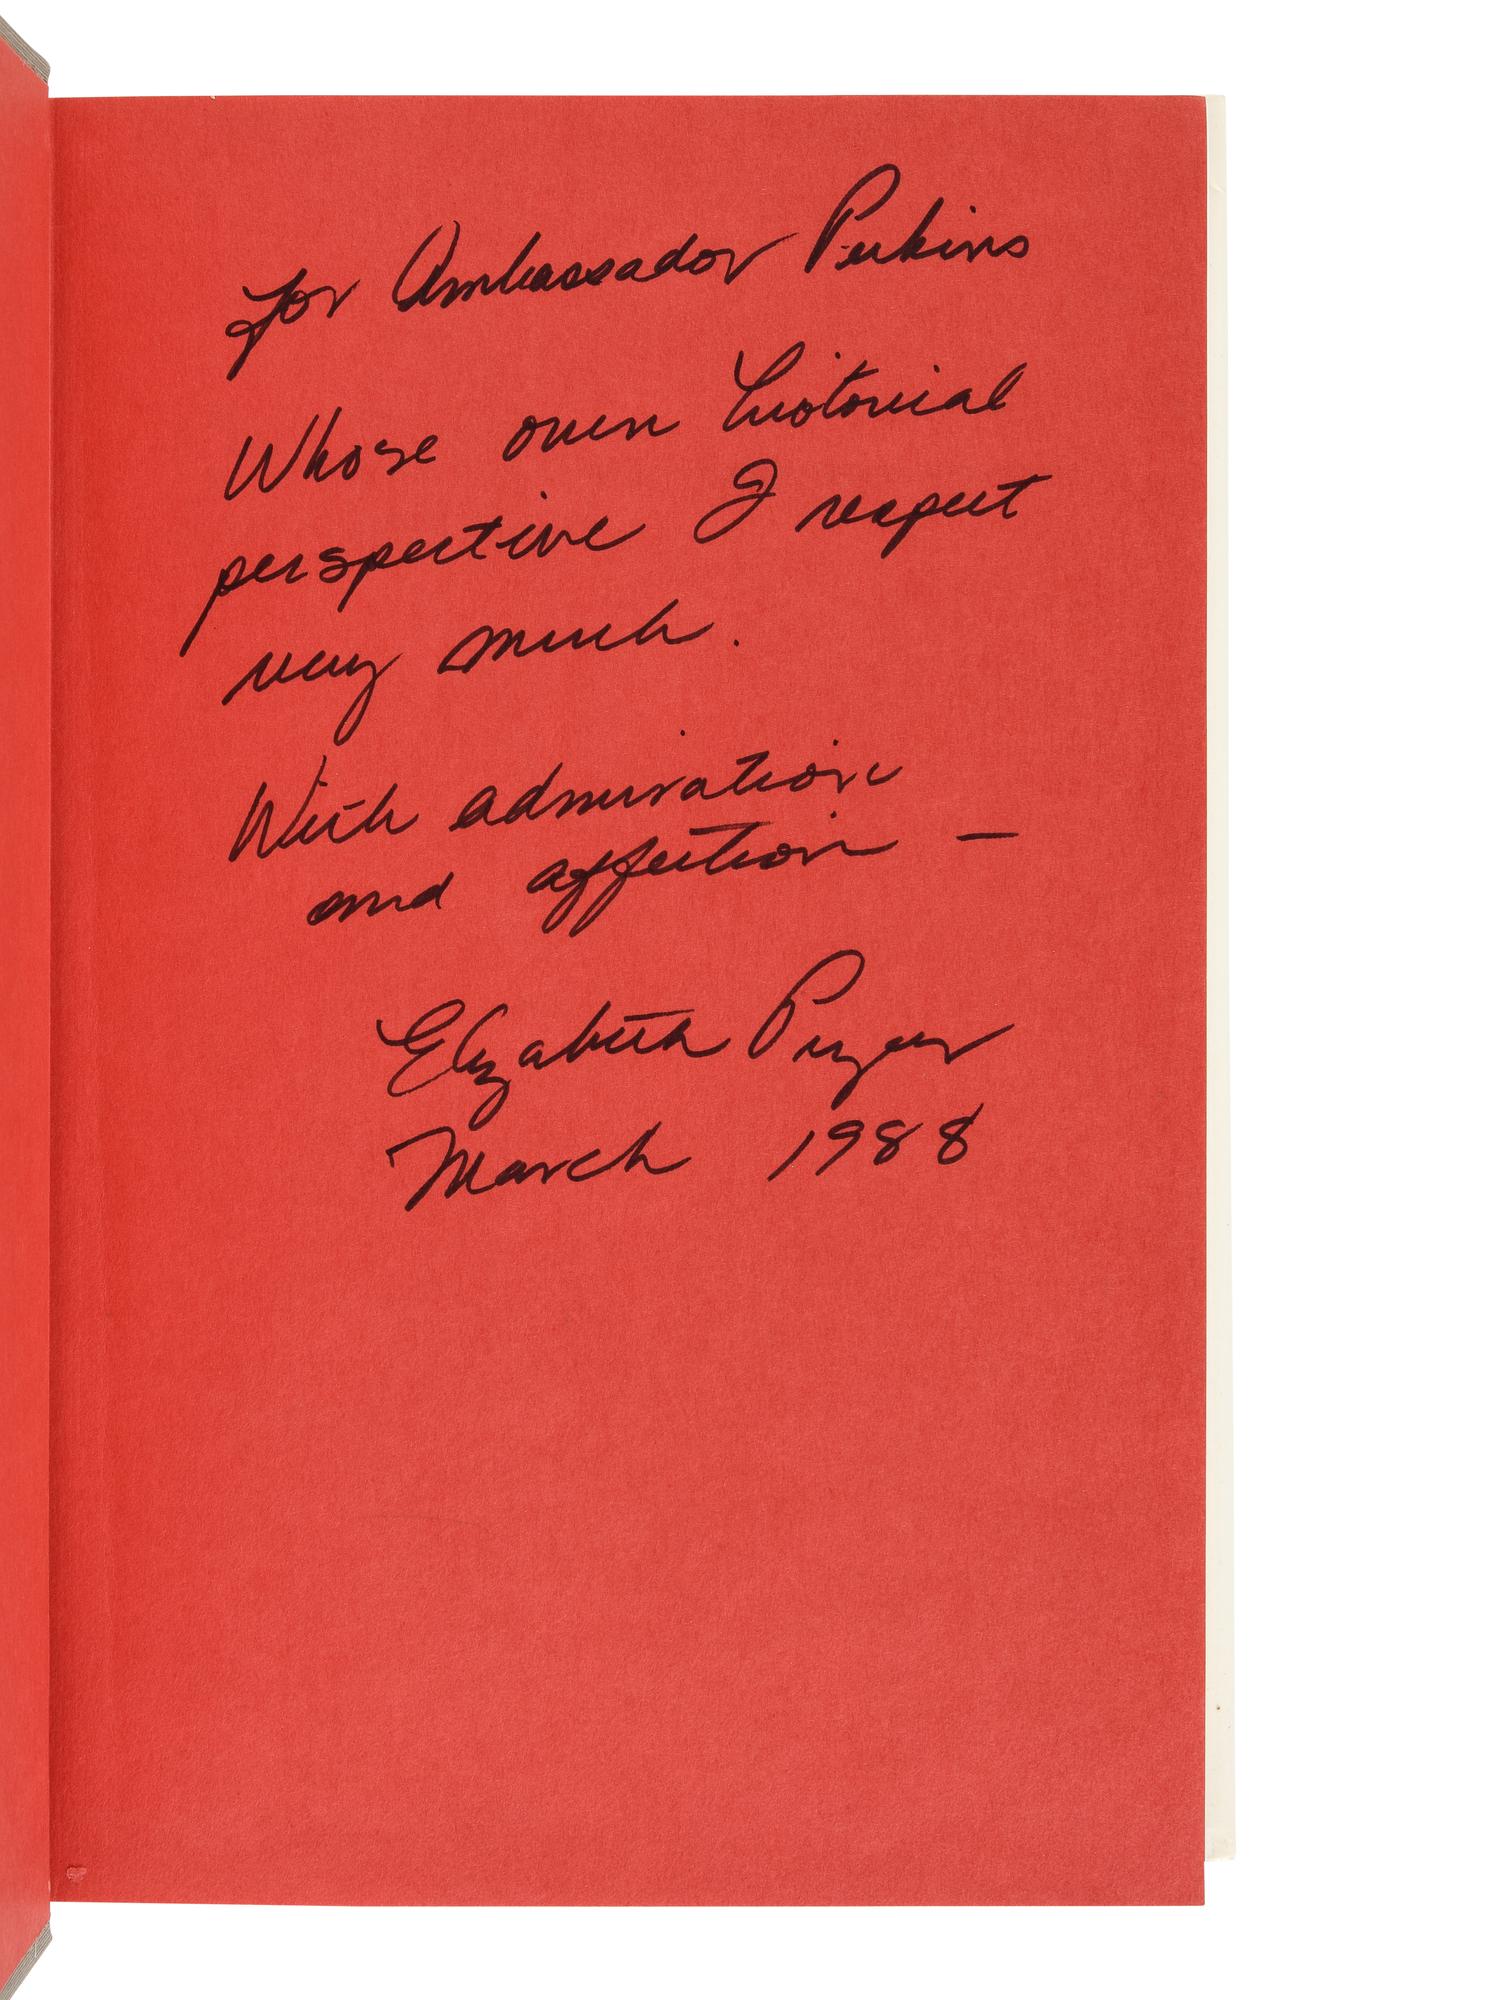 for Ambassador Perkins
Whose own historial
perspective I respect
very much.
With admiration
and affection –
Elizabeth Pryor
March 1988